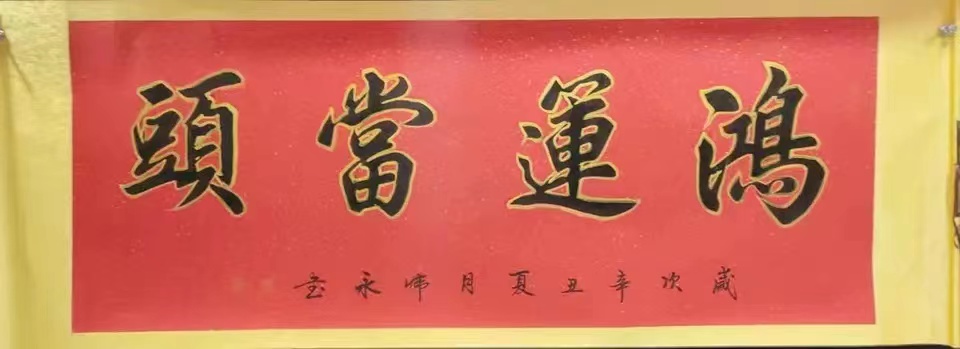 鴻運當頭
歲次辛丑夏月師永書